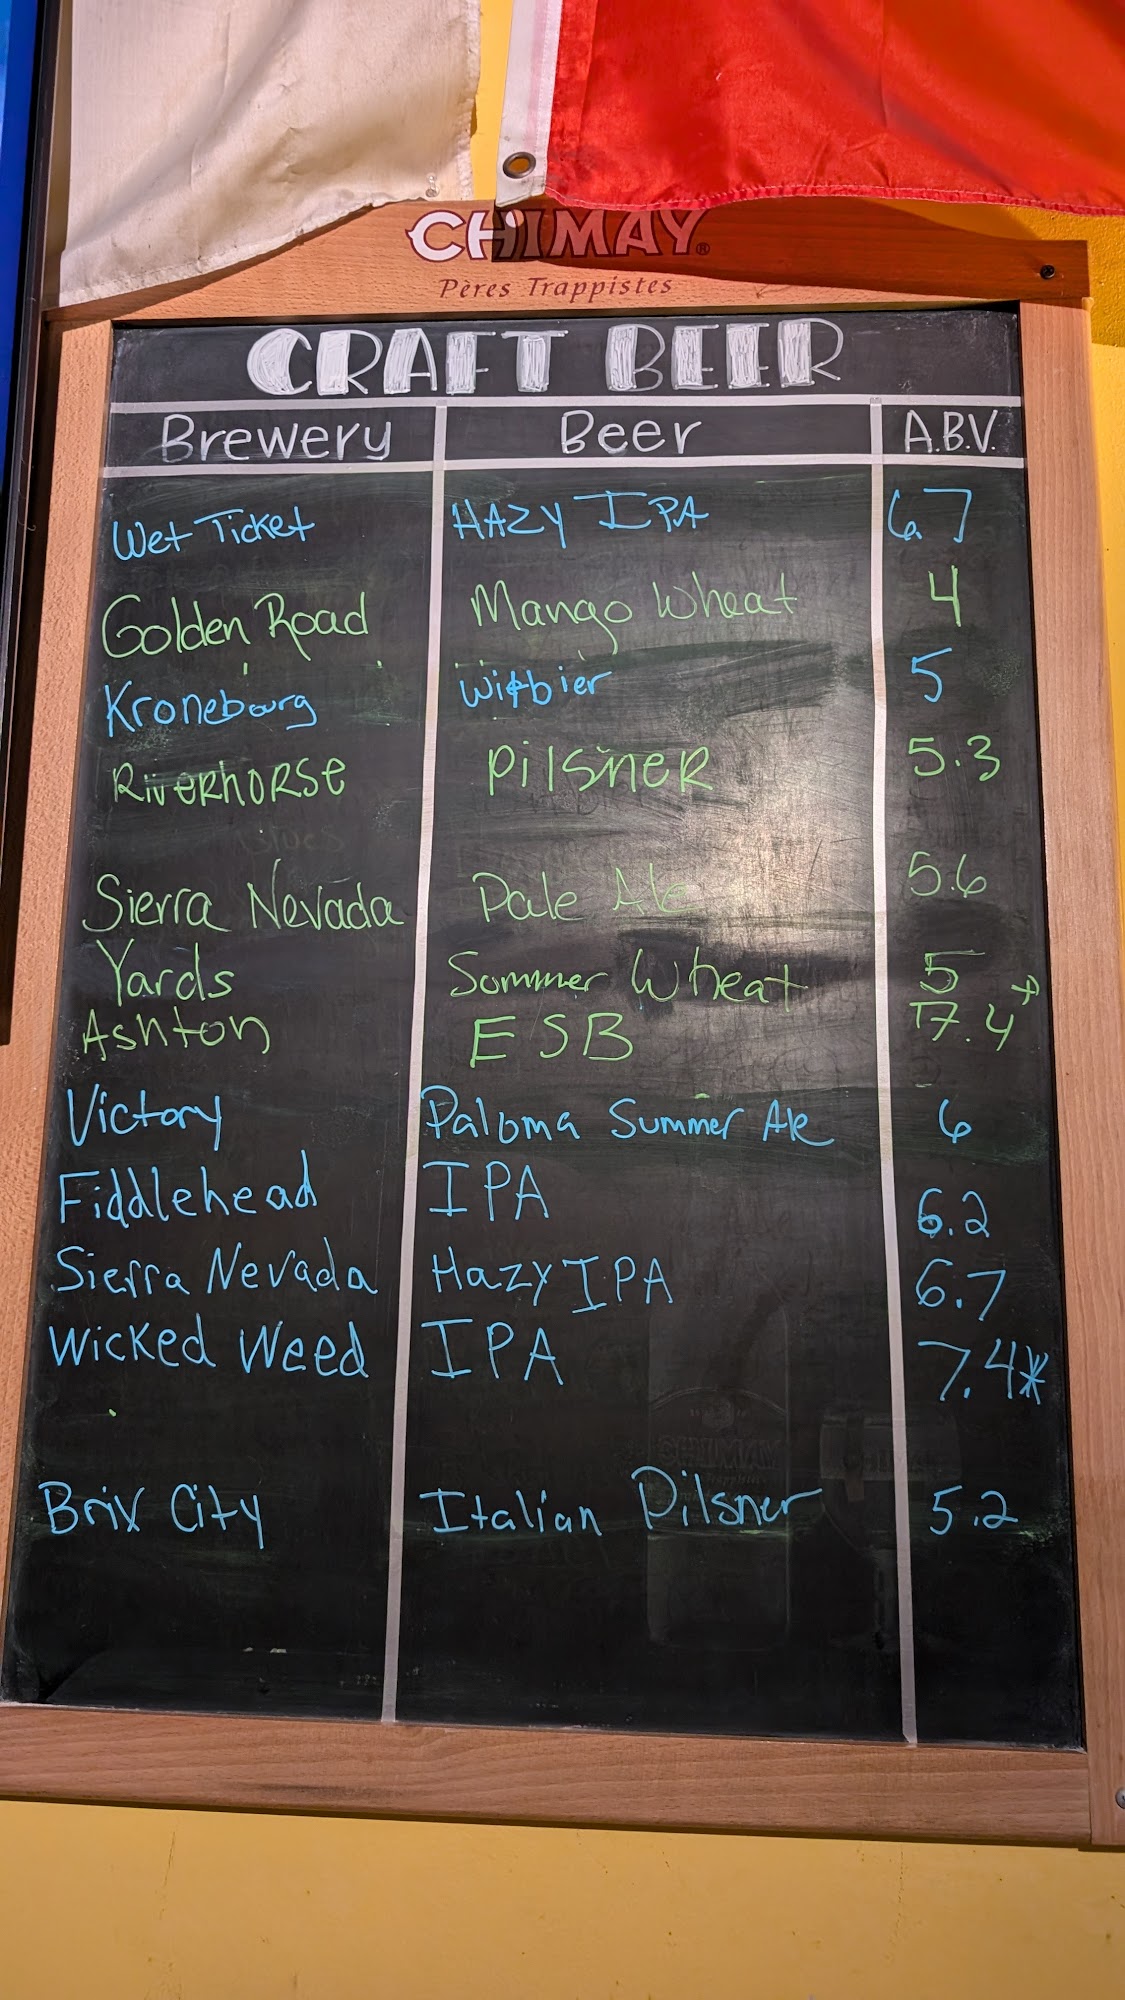 CHIMAY®
Pères Trappistes
CRAFT BEER
Brewery Beer A.B.V.
Wet Ticket HAZY IPA 6.7
Golden Road Mango Wheat 4
Kronebourg Witbier 5
RiverhoRSe PilsneR 5.3
Sierra Nevada Pale Ale 5.6
Yards Summer Wheat 5
Ashton ESB 7.4
Victory Paloma Summer Ale 6
Fiddlehead IPA 6.2
Sierra Nevada Hazy IPA 6.7
Wicked Weed IPA 7.4*
Brix City Italian Pilsner 5.2